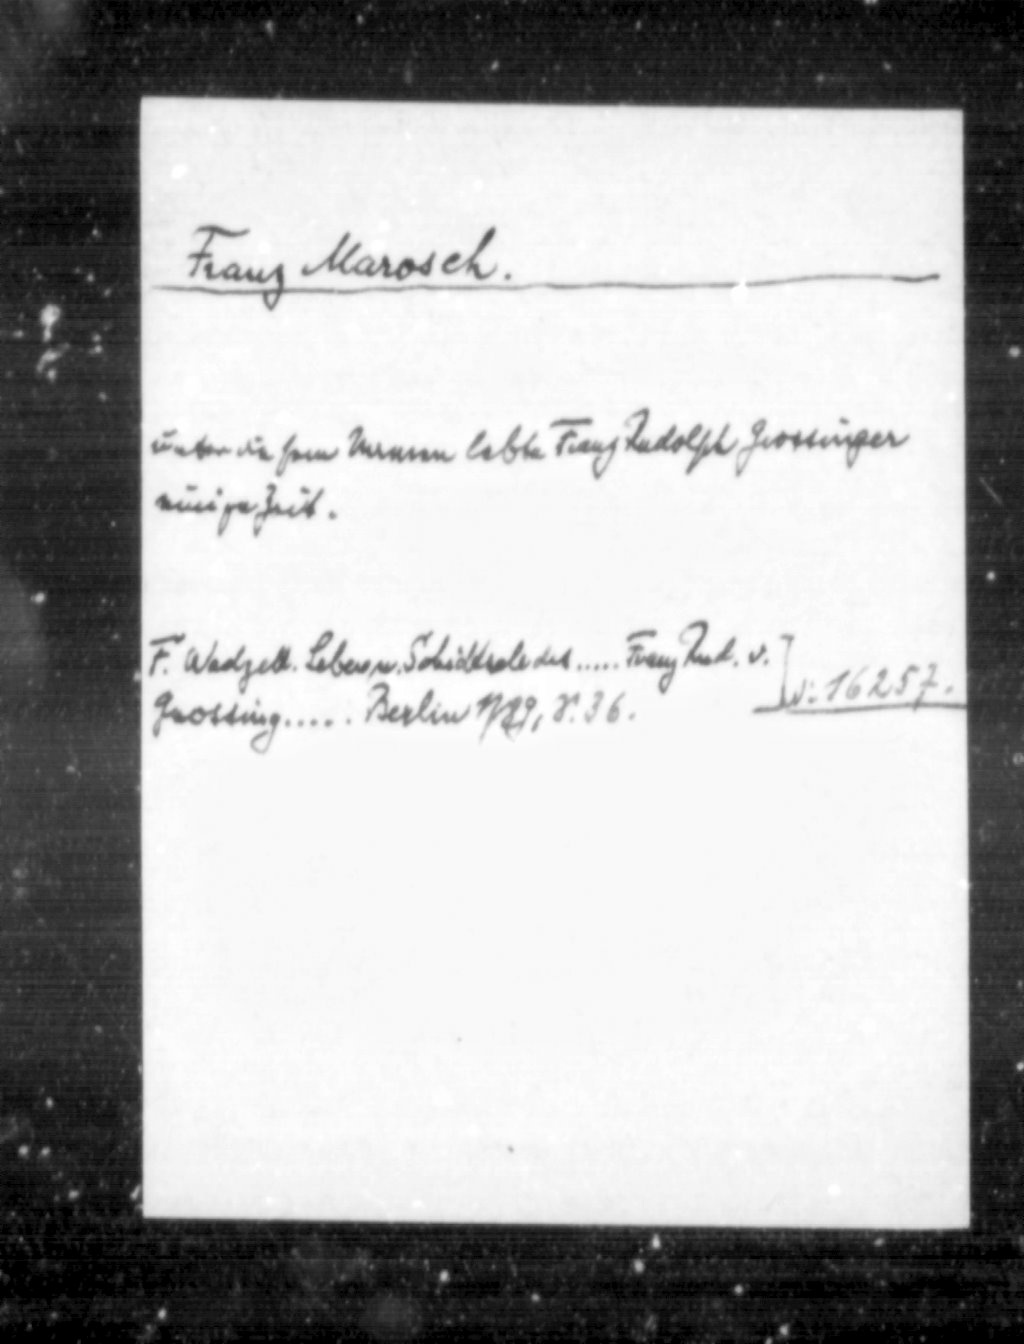 Franz Marosch.
unter diesem Namen lebte Franz Rudolph Grossinger
einige Zeit.
F. Wadzeck. Leben u. Schicksale des ..... Franz Rud. v.
Grossing ..... Berlin 1789, S. 36.
16257.